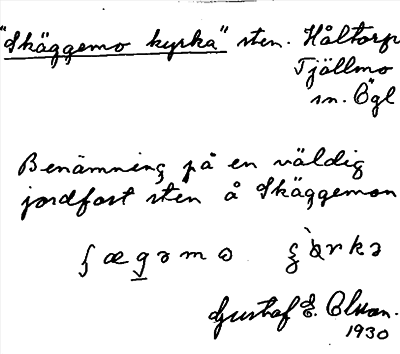 "Skäggemo kyrka" sten. Håltorp
Tjällmo
sn. Ögl
Benämning på en väldig
jordfast sten å Skäggemon
Gustaf E. Olson.
1930